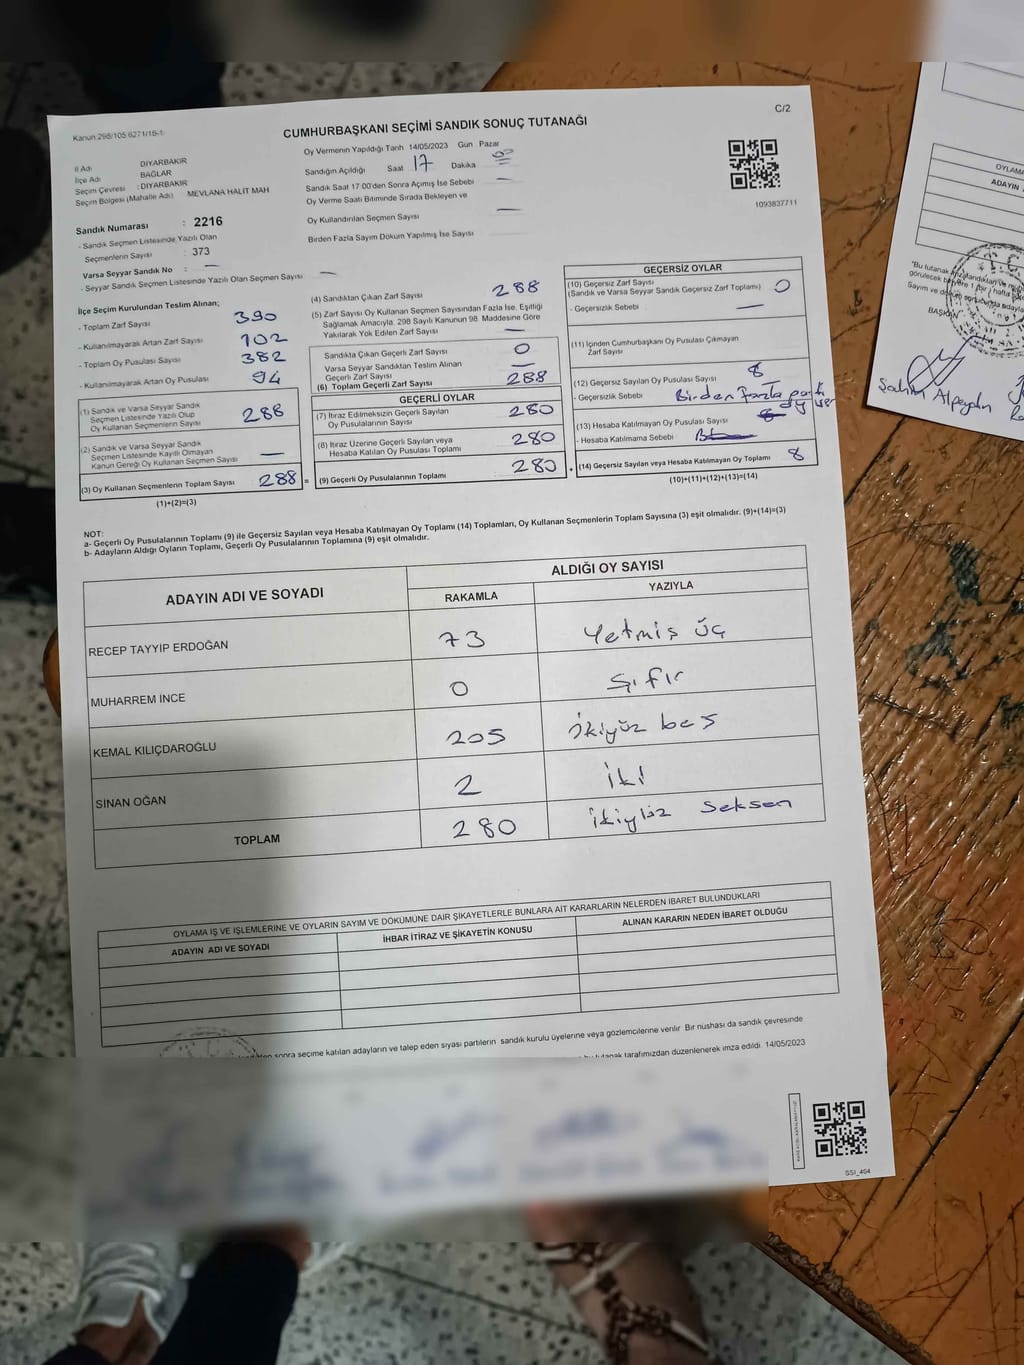 Kanun 298/105 6271/16-1
C/2
CUMHURBAŞKANI SEÇİMİ SANDIK SONUÇ TUTANAĞI
İl Adı DİYARBAKIR
İlçe Adı BAĞLAR
Seçim Çevresi : DİYARBAKIR
Seçim Bölgesi (Mahalle Adı) MEVLANA HALİT MAH
Oy Vermenin Yapıldığı Tarih 14/05/2023 Gün Pazar
Sandığın Açıldığı Saat 17 Dakika 00
Sandık Saat 17:00'den Sonra Açımış İse Sebebi —
Oy Verme Saati Bitiminde Sırada Bekleyen ve
Oy Kullandırılan Seçmen Sayısı —
Birden Fazla Sayım Döküm Yapılmış İse Sayısı
1093837711
Sandık Numarası : 2216
- Sandık Seçmen Listesinde Yazılı Olan
Seçmenlerin Sayısı : 373
Varsa Seyyar Sandık No : —
- Seyyar Sandık Seçmen Listesinde Yazılı Olan Seçmen Sayısı —
İlçe Seçim Kurulundan Teslim Alınan;
- Toplam Zarf Sayısı 390
- Kullanılmayarak Artan Zarf Sayısı 102
- Toplam Oy Pusulası Sayısı 382
- Kullanılmayarak Artan Oy Pusulası 94
(1) Sandık ve Varsa Seyyar Sandık
Seçmen Listesinde Yazılı Olup
Oy Kullanan Seçmenlerin Sayısı 288
(2) Sandık ve Varsa Seyyar Sandık
Seçmen Listesinde Kayıtlı Olmayan
Kanun Gereği Oy Kullanan Seçmen Sayısı —
(3) Oy Kullanan Seçmenlerin Toplam Sayısı 288 =
(1)+(2)=(3)
(4) Sandıktan Çıkan Zarf Sayısı 288
(5) Zarf Sayısı Oy Kullanan Seçmen Sayısından Fazla İse, Eşitliği
Sağlamak Amacıyla, 298 Sayılı Kanunun 98. Maddesine Göre
Yakılarak Yok Edilen Zarf Sayısı —
Sandıkta Çıkan Geçerli Zarf Sayısı 0
Varsa Seyyar Sandıktan Teslim Alınan
Geçerli Zarf Sayısı —
(6) Toplam Geçerli Zarf Sayısı 288
GEÇERLİ OYLAR
(7) İtiraz Edilmeksizin Geçerli Sayılan
Oy Pusulalarının Sayısı 280
(8) İtiraz Üzerine Geçerli Sayılan veya
Hesaba Katılan Oy Pusulası Toplamı 280
(9) Geçerli Oy Pusulalarının Toplamı 280 +
GEÇERSİZ OYLAR
(10) Geçersiz Zarf Sayısı
(Sandık ve Varsa Seyyar Sandık Geçersiz Zarf Toplamı) 0
- Geçersizlik Sebebi —
(11) İçinden Cumhurbaşkanı Oy Pusulası Çıkmayan
Zarf Sayısı
(12) Geçersiz Sayılan Oy Pusulası Sayısı 8
- Geçersizlik Sebebi Birden fazla parti
(13) Hesaba Katılmayan Oy Pusulası Sayısı
- Hesaba Katılmama Sebebi
(14) Geçersiz Sayılan veya Hesaba Katılmayan Oy Toplamı 8
(10)+(11)+(12)+(13)=(14)
NOT:
a- Geçerli Oy Pusulalarının Toplamı (9) ile Geçersiz Sayılan veya Hesaba Katılmayan Oy Toplamı (14) Toplamları, Oy Kullanan Seçmenlerin Toplam Sayısına (3) eşit olmalıdır. (9)+(14)=(3)
b- Adayların Aldığı Oyların Toplamı, Geçerli Oy Pusulalarının Toplamına (9) eşit olmalıdır.
ADAYIN ADI VE SOYADI
ALDIĞI OY SAYISI
RAKAMLA YAZIYLA
RECEP TAYYIP ERDOĞAN 73 Yetmiş üç
MUHARREM İNCE 0 Sıfır
KEMAL KILIÇDAROĞLU 205 ikiyüz beş
SİNAN OĞAN 2 iki
TOPLAM 280 ikiyüz seksen
OYLAMA İŞ VE İŞLEMLERİNE VE OYLARIN SAYIM VE DÖKÜMÜNE DAİR ŞİKAYETLERLE BUNLARA AİT KARARLARIN NELERDEN İBARET BULUNDUKLARI
ADAYIN ADI VE SOYADI İHBAR İTİRAZ VE ŞİKAYETİN KONUSU ALINAN KARARIN NEDEN İBARET OLDUĞU
sonra seçime katılan adayların ve talep eden siyasi partilerin sandık kurulu üyelerine veya gözlemcilerine verilir. Bir nüshası da sandık çevresinde
tutanak tarafımızdan düzenlenerek imza edildi. 14/05/2023
SSI_404
OYLAMA
ADAYIN
"Bu tutanak
BAŞKAN